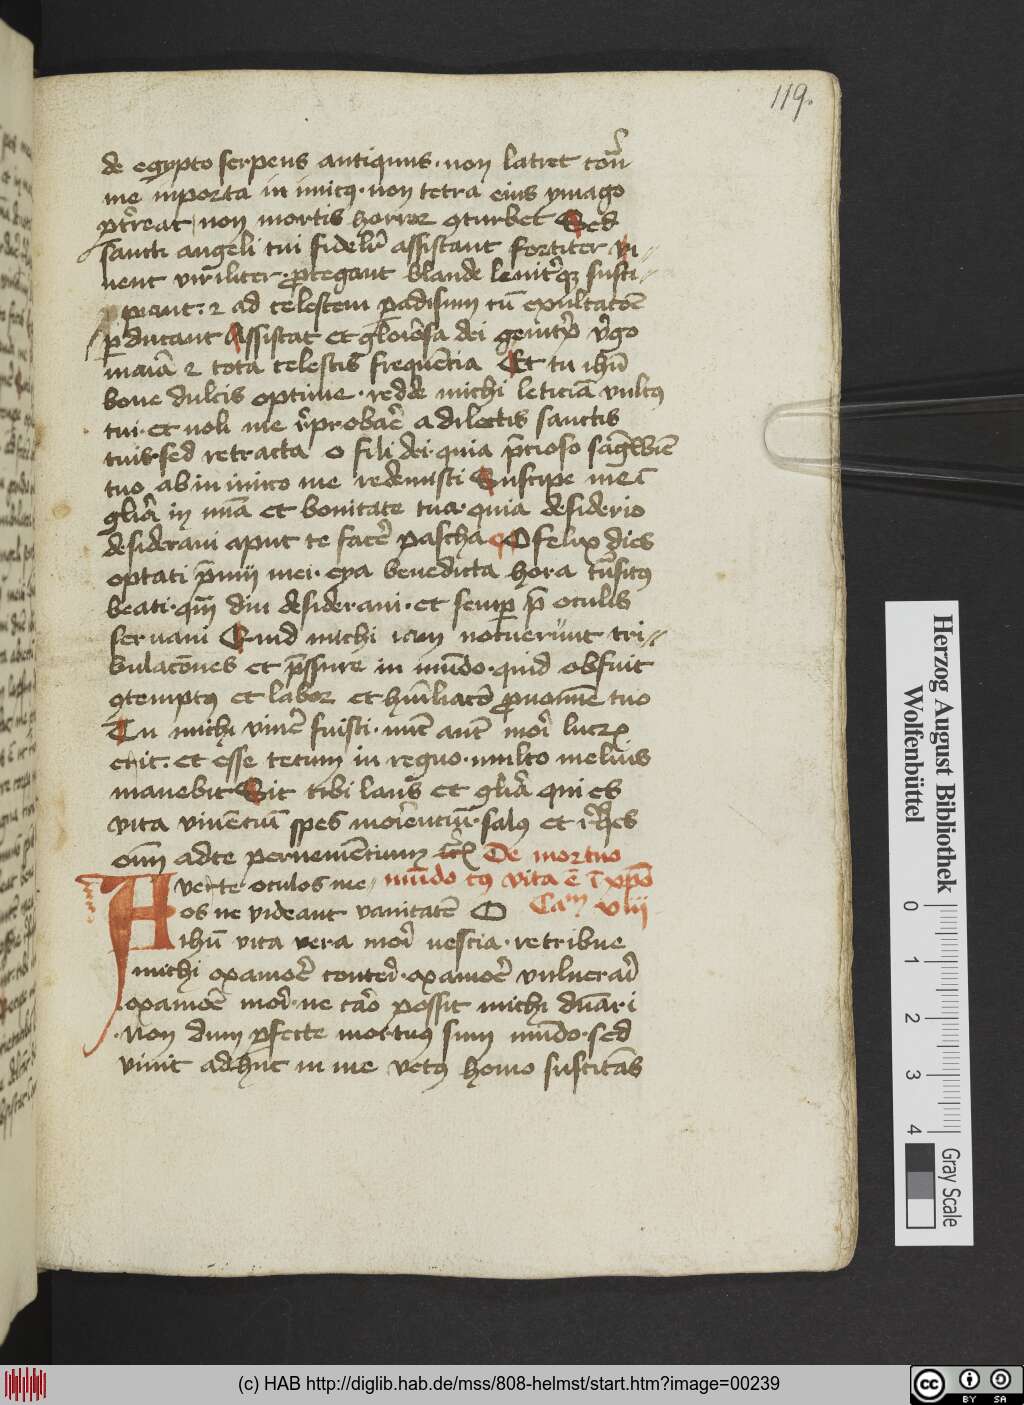 119.
de egypto serpens antiquus · non latret cont̄
me in porta inimicus · non tetra eius ymago
ptͬreat, non mortis horror ꝯturbet Sed
sancti angeli tui fidelit̄ assistant fortiter iu//
uent viriliter · ꝓtegant blande lenitͬqꝫ susci//
piant : ⁊ ad celestem ꝑadisum cū exultacōē
ꝑducant Assistat et gloiōsa dei genitͥx v̓go
maīa ⁊ tota celestis frequēcia Et tu ihū
bone dulcis optime · redde michi leticiā vultus
tui · et noli me r̓probar̄e a dilectis sanctis
tuis · sed retracta o fili dei · quia p̄cioso sāgwīe
tuo ab inimico me redemisti Suscipe me ī
gliā in mīa et bonitate tua · quia desiderio
desideraui aput te facer̄e pascha O felix dies
optati p̄mij mei · eya benedicta hora tͣnsitus
beati · qm̄ diu desideraui · et semꝑ p̄ oculis
seruaui Quid michi iam nocuerunt tri//
bulacōnes et p̄ssure in mūdo · quid obfuit
ꝯtemptus et labor et hūiliacō ꝓ nomīe tuo
Tu michi viuēr̄e fuisti · nūc aut̄ mori lucrꝫ
erit : et esse tecum in regno · multo melius
manebit Sit tibi laus et gliā qui es
vita viuēciū spes moriēncium · salus et r̄̓ſes
oīm ad te perueniēcium De mortuo
mūdo cuiꝰ vita ē ī xp̄o
Cam viij
Auerte oculos me-
os ne videant vanitatē O
ihū vita vera mori nescia · retribue
michi ex amor̄e conteri · ex amor̄e vulnerari
ex amor̄e mori · ne caro possit michi dn̄ari
Non dum ꝑfecte mortuus sum mūdo · sed
viuit adhuc in me vetus homo suscitās
Herzog August Bibliothek
Wolfenbüttel
0 1 2 3 4
Gray Scale
(c) HAB http://diglib.hab.de/mss/808-helmst/start.htm?image=00239
cc BY SA